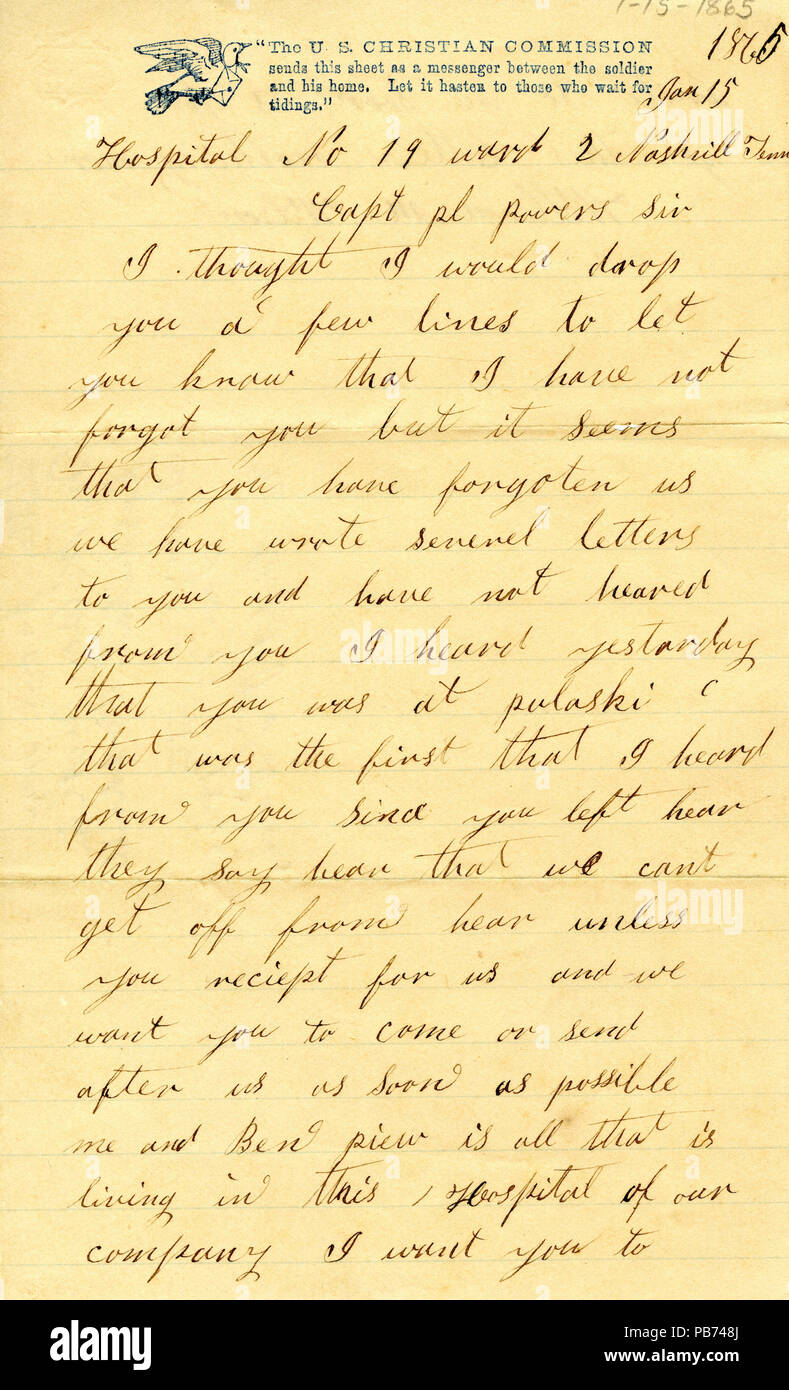 1-15-1865
"The U. S. CHRISTIAN COMMISSION
sends this sheet as a messenger between the soldier
and his home. Let it hasten to those who wait for
tidings."
1865
Jan 15
Hospital No 19 ward 2 Nashvill Tenn
Capt pl powers sir
I thought I would drop
you a few lines to let
you know that I have not
forgot you but it seems
that you have forgoten us
we have wrote severel letters
to you and have not heared
from you I heard yestarday
that you was at pulaski
that was the first that I heard
from you since you left hear
they say hear that we cant
get off from hear unless
you reciept for us and we
want you to come or send
after us as soon as possible
me and Ben piew is all that is
living in this Hospital of our
company I want you to
alamy
Image ID: PB748J
www.alamy.com